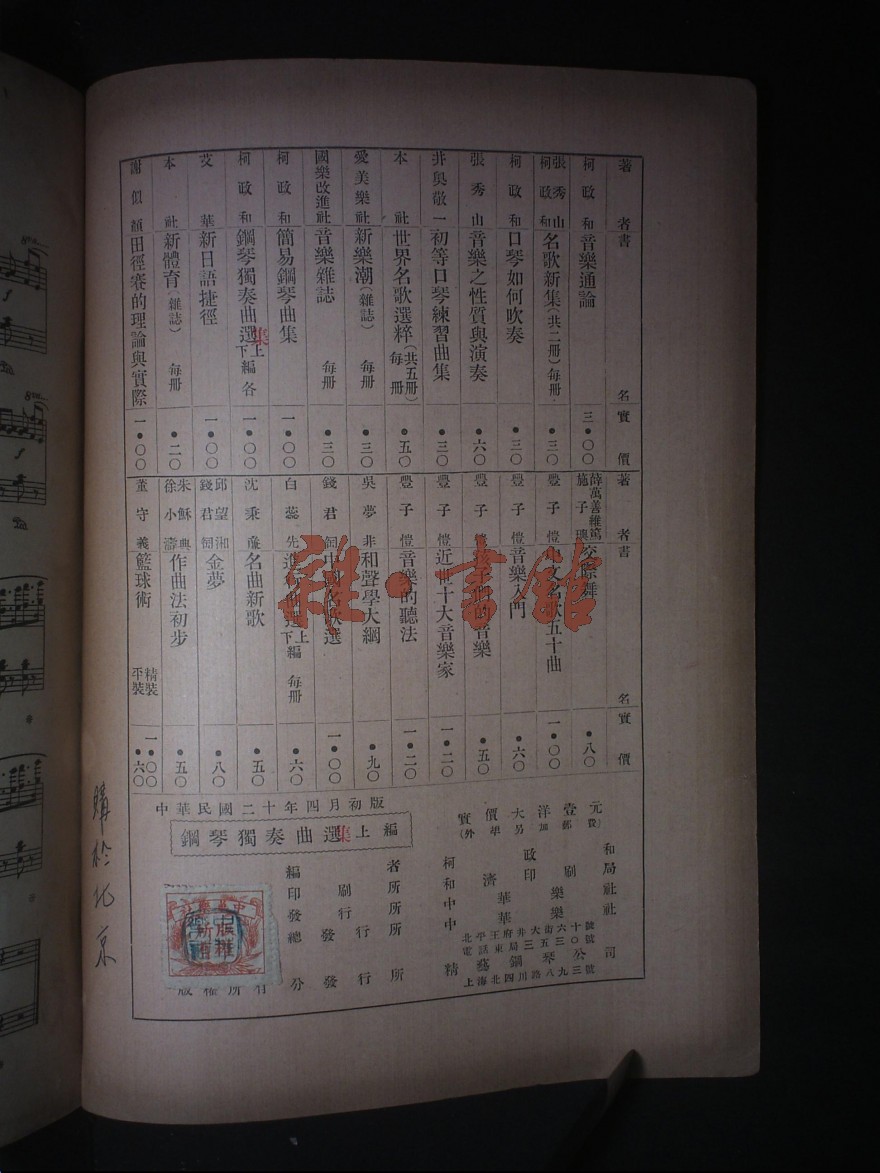 著者 書名 實價
柯政和 音樂通論 三•〇〇
張秀山 柯政和 名歌新集(共二冊)每冊 •三〇
柯政和 口琴如何吹奏 •三〇
張秀山 音樂之性質與演奏 •六〇
井奧敬一 初等口琴練習曲集 •三〇
本社 世界名歌選粹(共五冊)每冊 •五〇
愛美樂社 新樂潮(雜誌) 每冊 •三〇
國樂改進社 音樂雜誌 每冊 •三〇
柯政和 簡易鋼琴曲集 一•〇〇
柯政和 鋼琴獨奏曲選集上下編各 一•〇〇
艾華 新日語捷徑 一•〇〇
本社 新體育(雜誌) 每冊 •二〇
謝似顏 田徑賽的理論與實際 一•〇〇
著者 書名 實價
交際舞 •八〇
豐子愷 文名歌五十曲 一•〇〇
豐子愷 音樂入門 •六〇
豐子愷 孩子們的音樂 •五〇
豐子愷 近世十大音樂家 一•二〇
豐子愷 音樂的聽法 一•二〇
吳夢非 和聲學大綱 •九〇
錢君匋 中國名歌選 一•〇〇
白蕊先 進行曲選上下編 每冊 •六〇
沈秉廉 名曲新歌 •五〇
邱望湘 錢君匋 金夢 •八〇
朱穌典 徐小濤 作曲法初步 •五〇
董守義 籃球術 精裝 一•〇〇 平裝 •六〇
中華民國二十年四月初版
鋼琴獨奏曲選集上編
實價大洋壹元
(外埠另加郵費)
編者 柯政和
印刷所 和濟印刷局
發行所 中華樂社
總發行所 中華樂社
北平王府井大街六十號
電話東局三五三〇號
分發行所 精藝鋼琴公司
上海北四川路八九三號
版權所有
購於北京
雅•書館